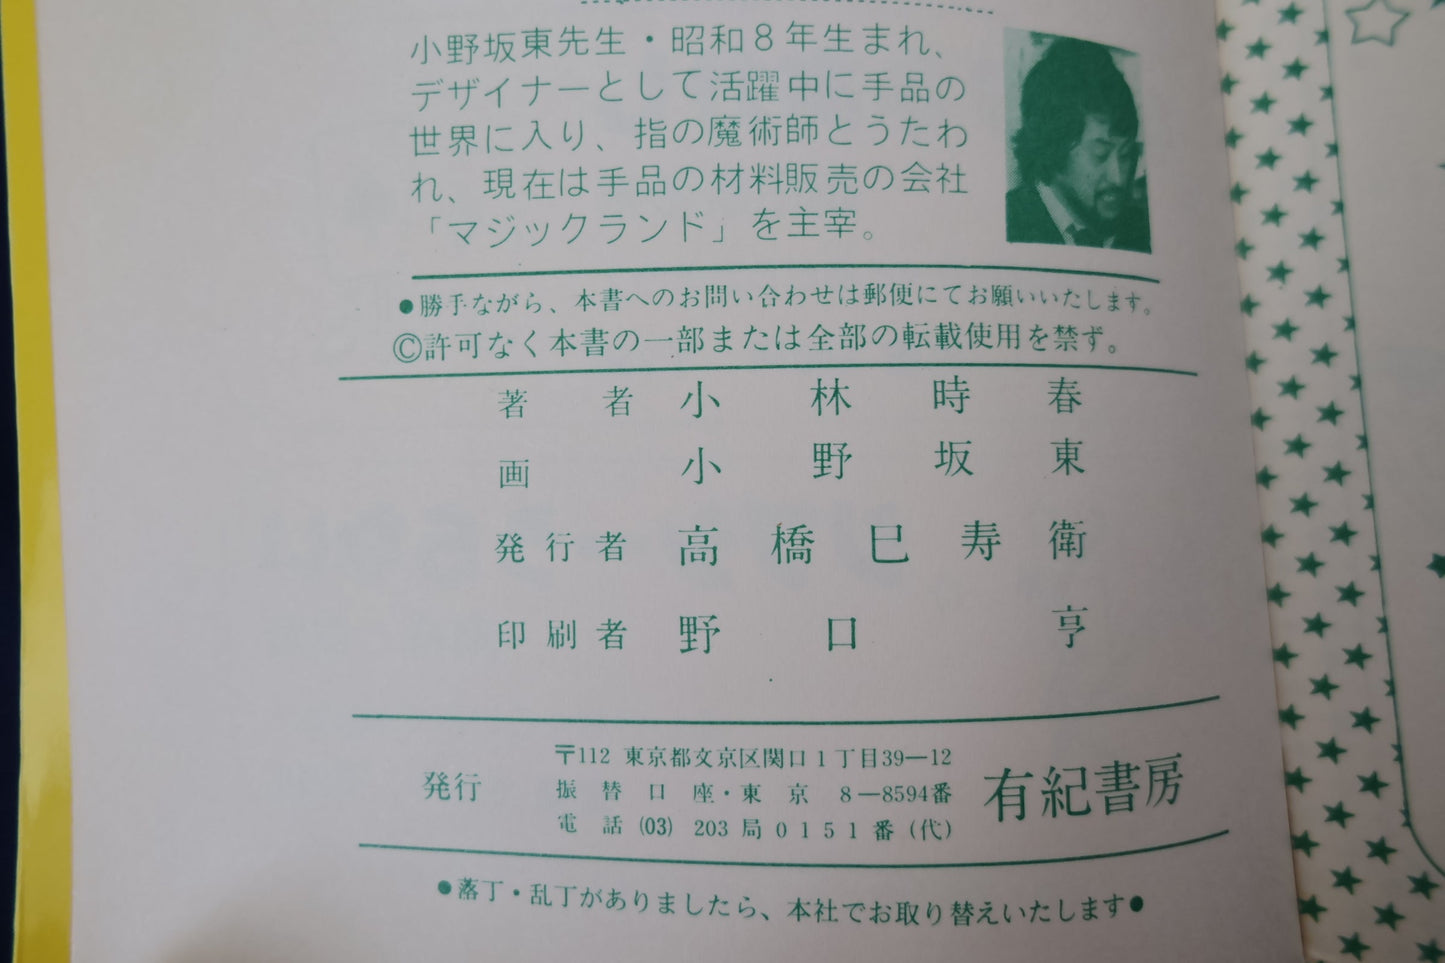 小野坂東先生・昭和8年生まれ、
デザイナーとして活躍中に手品の
世界に入り、指の魔術師とうたわ
れ、現在は手品の材料販売の会社
「マジックランド」を主宰。
●勝手ながら、本書へのお問い合わせは郵便にてお願いいたします。
©許可なく本書の一部または全部の転載使用を禁ず。
著者 小林時春
画 小野坂東
発行者 高橋巳寿衛
印刷者 野口亨
発行
〒112 東京都文京区関口1丁目39―12
振替口座・東京 8―8594番
電話 (03) 203局0151番(代)
有紀書房
●落丁・乱丁がありましたら、本社でお取り替えいたします●